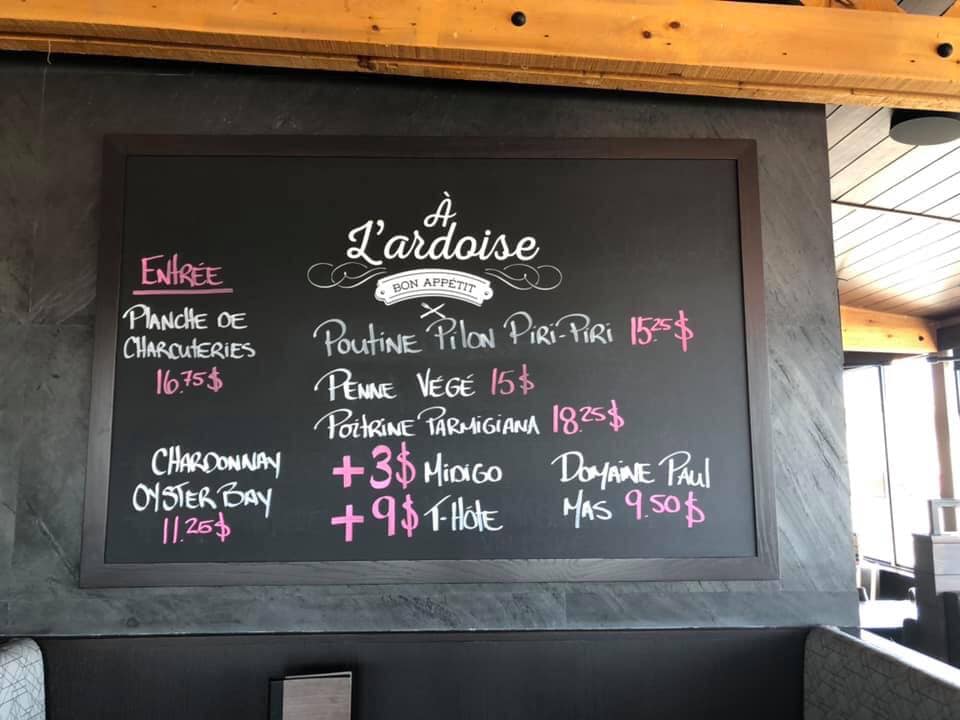 À
L'ardoise
BON APPÉTIT
ENTRÉE
PLANCHE DE
CHARCUTERIES
16.75$
CHARDONNAY
OYSTER BAY
11.25$
POUTINE PILON PIRI-PIRI 15.25$
PENNE VÉGÉ 15$
POITRINE PARMIGIANA 18.25$
+3$ MIDIGO
+9$ T-HÔTE
DOMAINE PAUL
MAS 9.50$